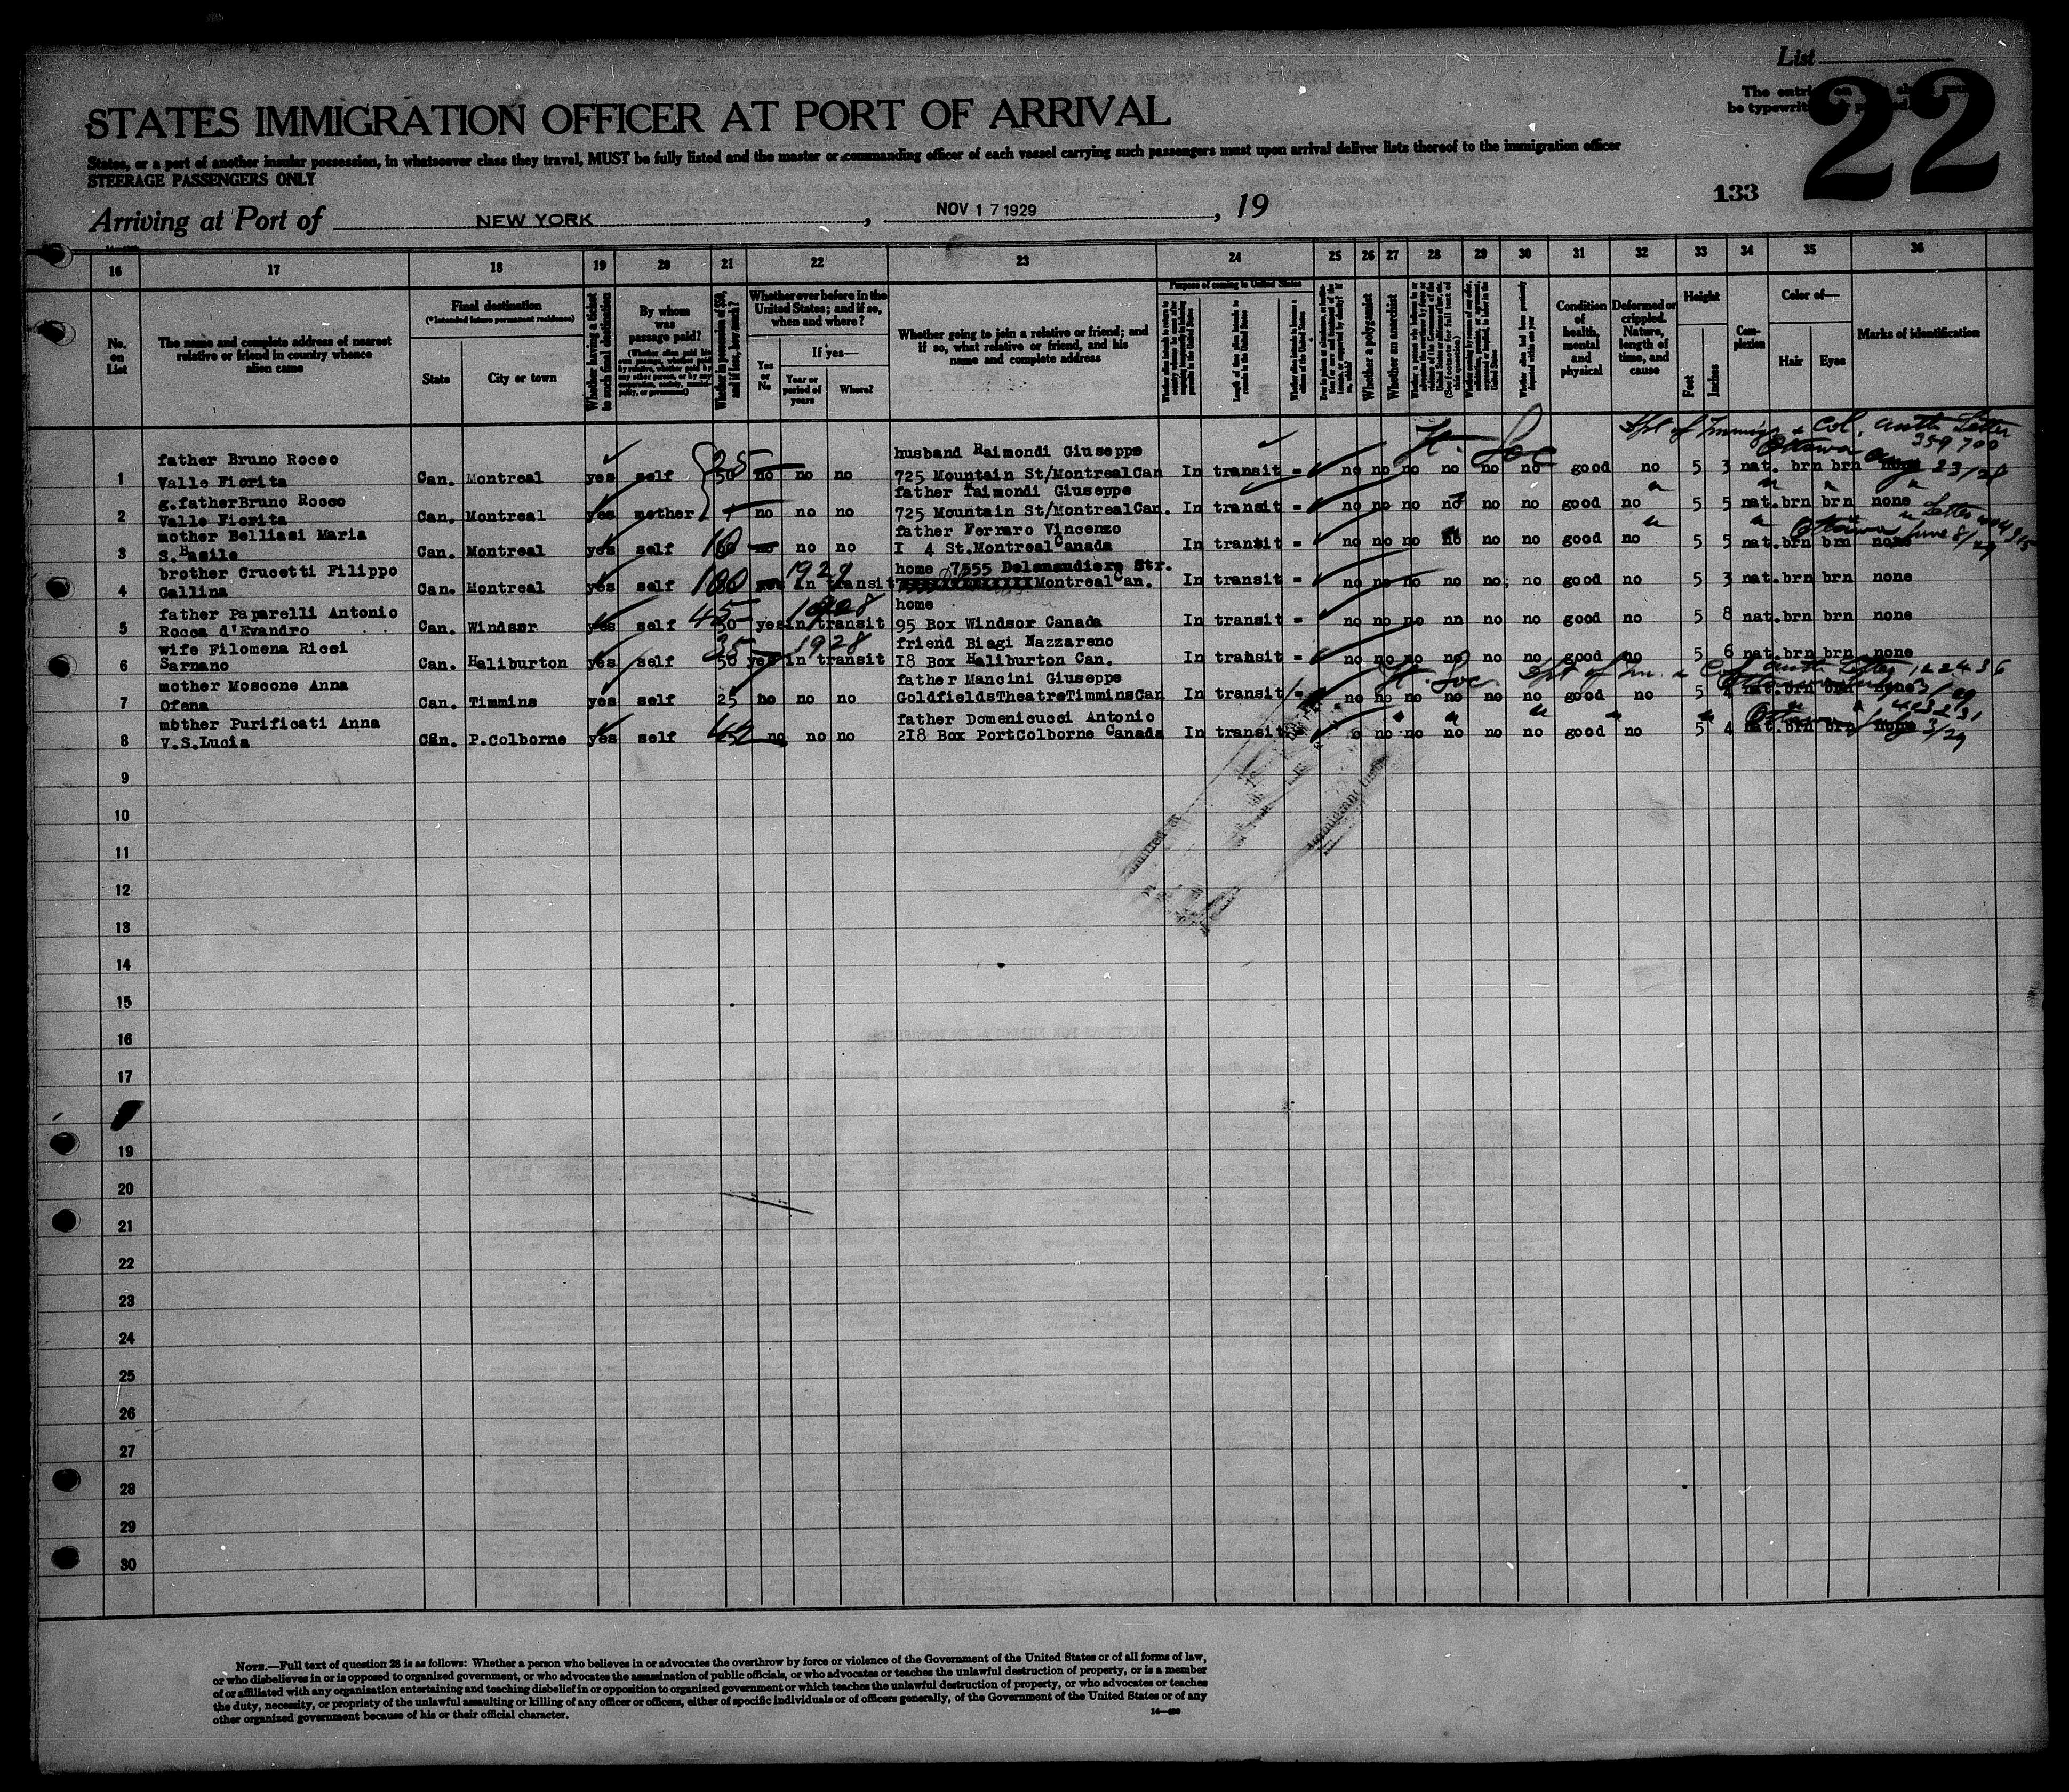 List
22
The entries on
be typewritten
STATES IMMIGRATION OFFICER AT PORT OF ARRIVAL
States, or a port of another insular possession, in whatsoever class they travel, MUST be fully listed and the master or commanding officer of each vessel carrying such passengers must upon arrival deliver lists thereof to the immigration officer
STEERAGE PASSENGERS ONLY
133
Arriving at Port of NEW YORK, NOV 17 1929, 19
16 17 18 19 20 21 22 23 24 25 26 27 28 29 30 31 32 33 34 35 36
No. on List
The name and complete address of nearest relative or friend in country whence alien came
Final destination
(*Intended future permanent residence)
State
City or town
Whether having a ticket to such final destination
By whom was passage paid?
Whether in possession of $50, and if less, how much?
Whether ever before in the United States; and if so, when and where?
Yes or No
If yes—
Year or period of years
Where?
Whether going to join a relative or friend; and if so, what relative or friend, and his name and complete address
Purpose of coming to United States
Whether a polygamist
Whether an anarchist
Condition of health, mental and physical
Deformed or crippled. Nature, length of time, and cause
Height
Feet
Inches
Complexion
Color of—
Hair
Eyes
Marks of identification
Dpt of Immigr & Col. auth Letter
Ottawa 359700
Aug 23/28
father Bruno Rocco husband Raimondi Giuseppe
1 Valle Fiorita Can. Montreal yes self 50 no no no 725 Mountain St/MontrealCan In transit = no no no no no no good no 5 3 nat. brn brn none
g.fatherBruno Rocco father Raimondi Giuseppe
2 Valle Fiorita Can. Montreal yes mother no no no 725 Mountain St/MontrealCan. In transit = no no no no no no good no 5 5 nat.brn brn none
mother Belliasi Maria father Ferraro Vincenzo
3 S.Basile Can. Montreal yes self 10 no no no I 4 St.Montreal Canada In transit = no no no no no no good no 5 5 nat.brn brn none
brother Crucetti Filippo 1929 home 7555 Delanaudiere Str.
4 Gallina Can. Montreal yes self 100 yes in transit Montreal Can. In transit = no no no no no no good no 5 3 nat.brn brn none
father Paparelli Antonio 1928 home
5 Rocca d'Evandro Can. Windsor yes self 45 50 yes in transit 95 Box Windsor Canada In transit = no no no nn no no good no 5 8 nat.brn brn none
wife Filomena Ricci 35 1928 friend Biagi Nazzareno
6 Sarnano Can. Haliburton yes self 50 yes in transit 18 Box Haliburton Can. In transit = no no no no no no good no 5 6 nat.brn brn none
mother Moscone Anna father Mancini Giuseppe
7 Ofena Can. Timmins yes self 25 no no no GoldfieldsTheatreTimminsCan In transit = no no no no no no good no 5 nat.brn brn none
mother Purificati Anna father Domenicucci Antonio
8 V.S.Lucia Can. P.Colborne yes self no no no 218 Box PortColborne Canada In transit no no no no no good no 5 4 nat.brn brn none
9
10
11
12
13
14
15
16
17
19
20
21
22
23
24
25
26
27
28
29
30
NOTE.—Full text of question 28 is as follows: Whether a person who believes in or advocates the overthrow by force or violence of the Government of the United States or of all forms of law,
or who disbelieves in or is opposed to organized government, or who advocates the assassination of public officials, or who advocates or teaches the unlawful destruction of property, or is a member
of or affiliated with any organization entertaining and teaching disbelief in or opposition to organized government or which teaches the unlawful destruction of property, or who advocates or teaches
the duty, necessity, or propriety of the unlawful assaulting or killing of any officer or officers, either of specific individuals or of officers generally, of the Government of the United States or of any
other organized government because of his or their official character.
14—480